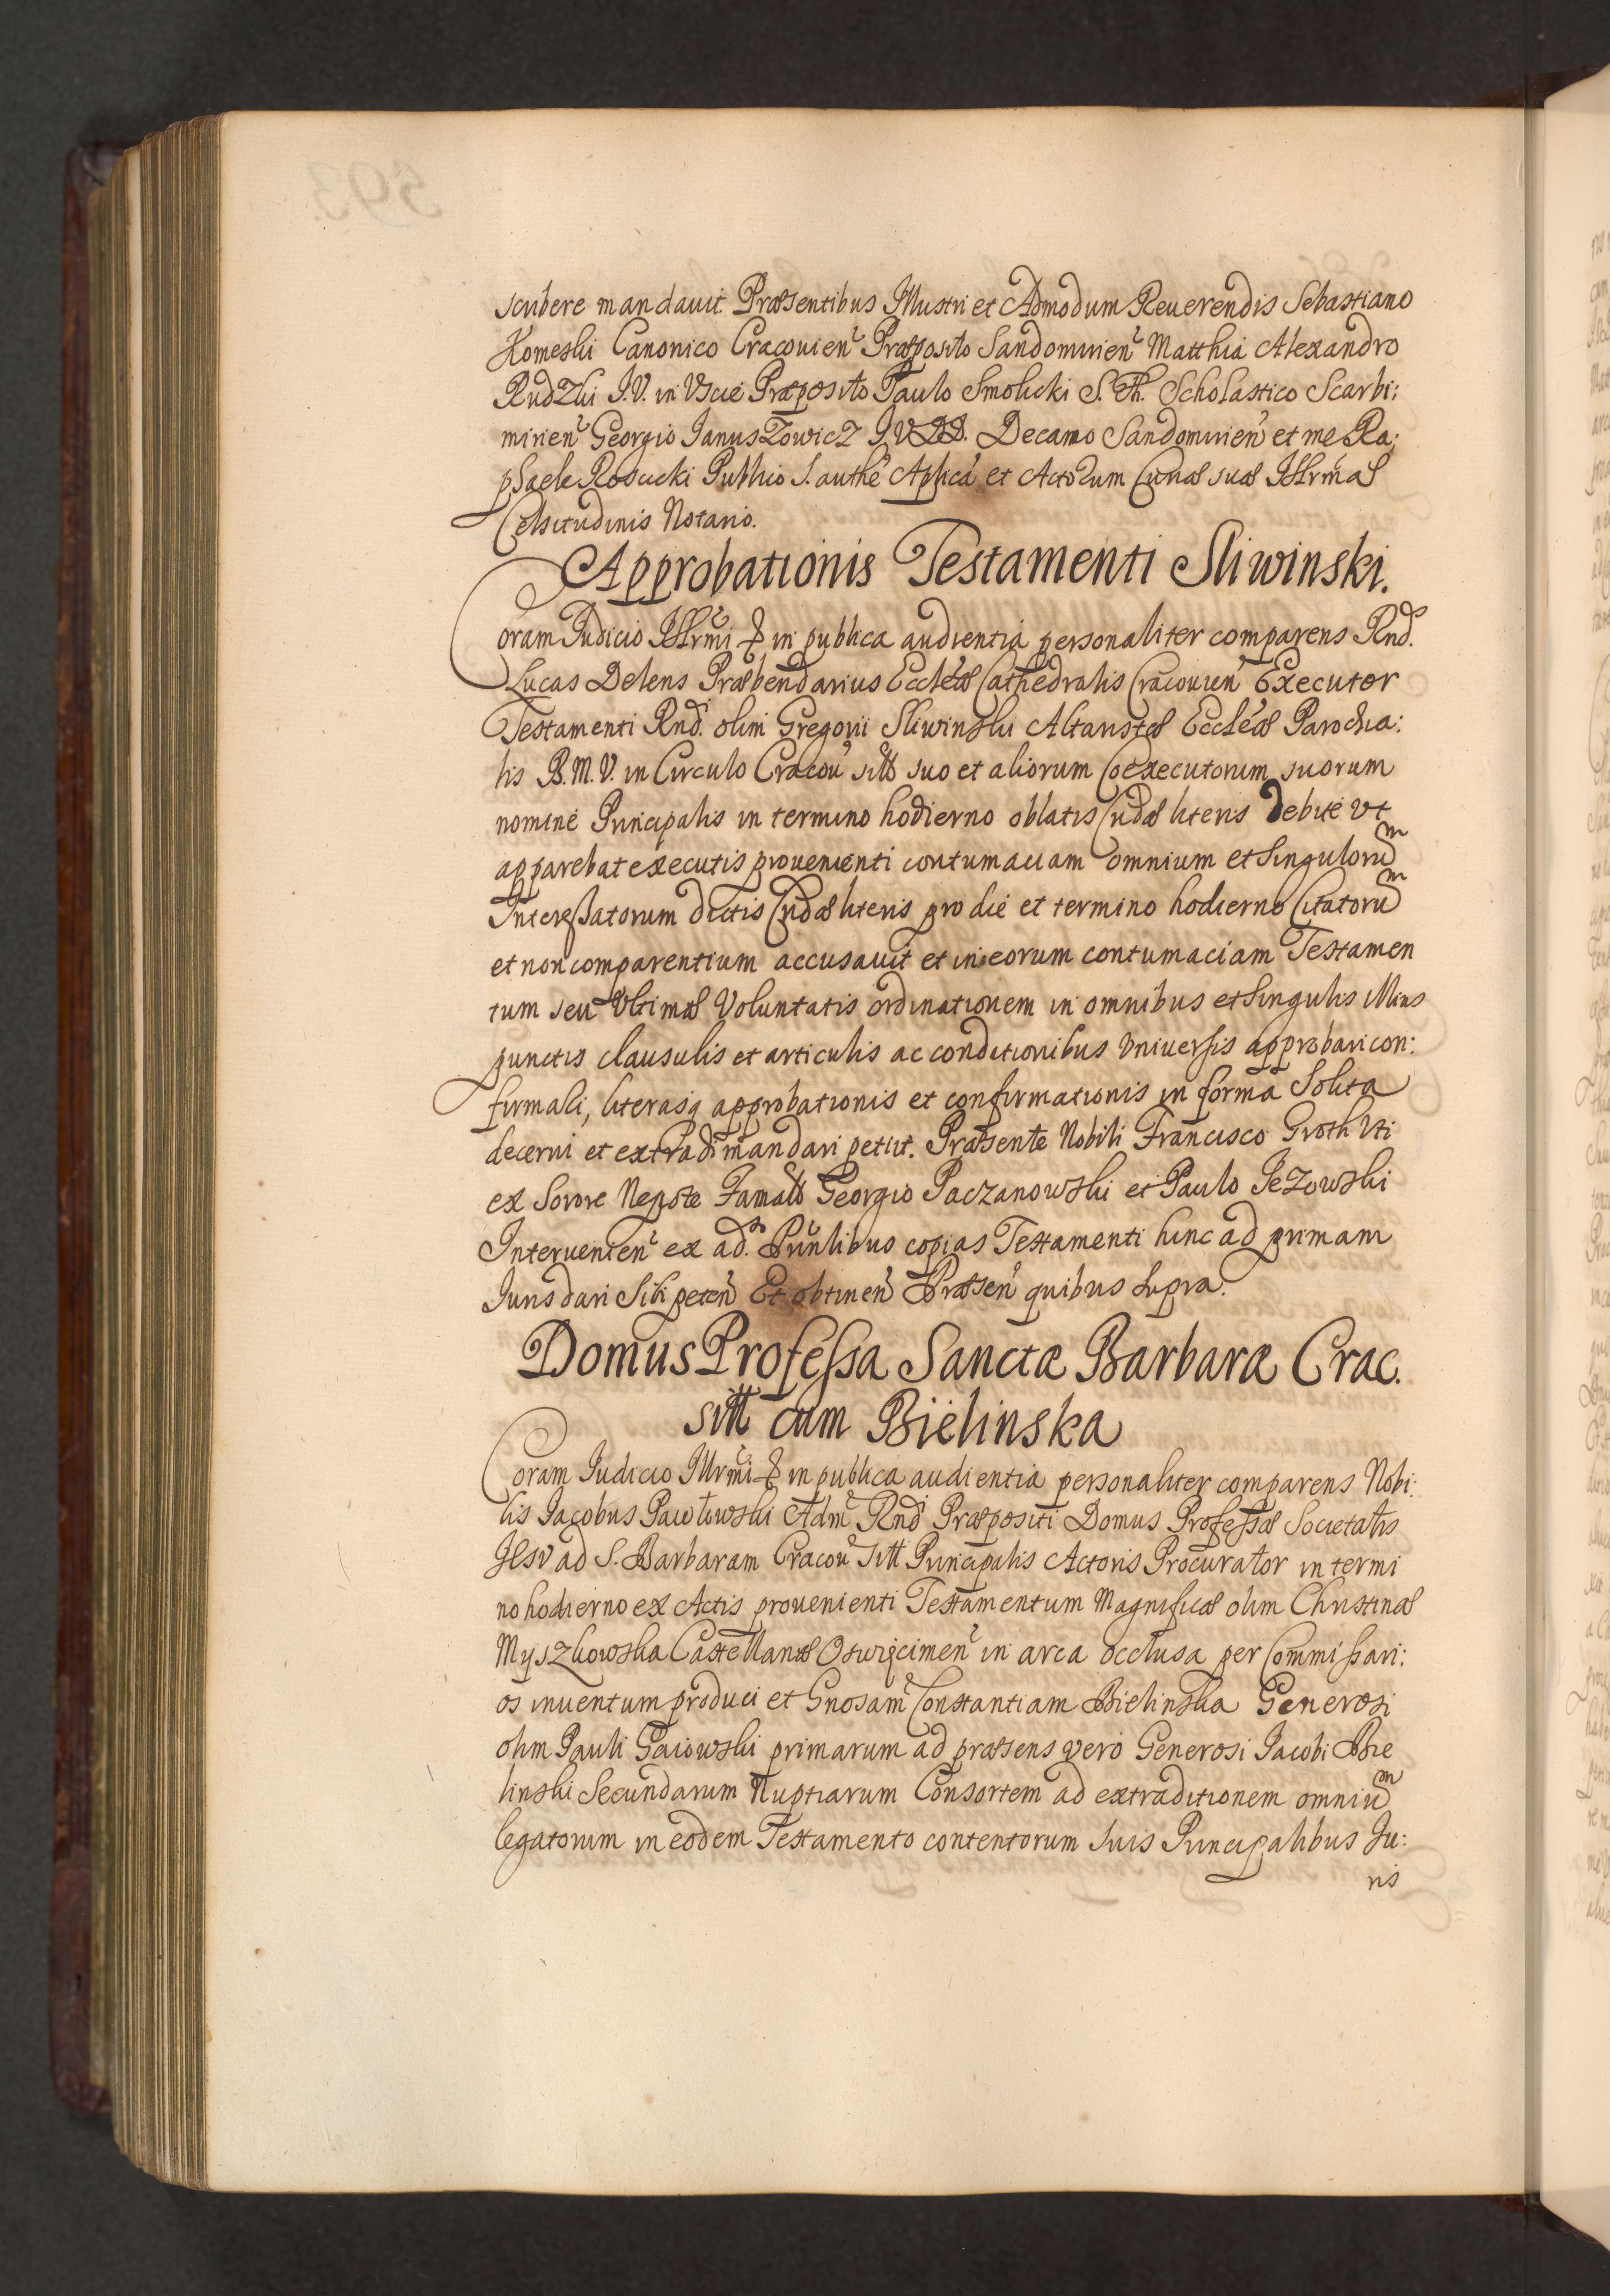 scribere mandauit. Præsentibus Illustri et Admodum Reuerendis Sebastiano
Komeski Canonico Cracouien̄ Præposito Sandomirien̄ Matthia Alexandro
Rudzki I.V. in Vscie Præposito Paulo Smolicki S. Th. Scholastico Scarbi:
mirien̄ Georgio Ianuszowicz I.V.D.D. Decano Sandomirien̄ et me Ra:
phaele Rosucki Publico S. authē Aplicā et Actorum Curiæ suæ Illrmæ
Celsitudinis Notario.
Approbationis Testamenti Sliwinski.
Coram Iudicio Illrmi & in publica audientia personaliter comparens Rnd.
Lucas Delens Præbendarius Eccleæ Cathedralis Cracouien̄ Executor
Testamenti Rnd. olim Gregorii Sliwinski Altaristæ Eccleæ Parochia:
lis B.M.V. in Circulo Cracou̅ sitæ suo et aliorum Coexecutorum suorum
nomine Principalis in termino hodierno oblatis Cridæ literis debite vt
apparebat executis prouenienti contumaciam omnium et singulorum
Interessatorum dictis Cridæ literis pro die et termino hodierno Citatorum
et non comparentium accusauit et in eorum contumaciam Testamen
tum seu Vltimæ Voluntatis ordinationem in omnibus et singulis illius
punctis clausulis et articulis ac conditionibus vniuersis approbari con:
firmari, literasq approbationis et confirmationis in forma Solita
decerni et extradi mandari petiit. Præsente Nobili Francisco Groth Vti
ex Sorore Nepote Famatis Georgio Paczanowski et Paulo Jezowski
Interuenien̄ ex ad. Prinlibus copias Testamenti hinc ad primam
Iuris dari Sibi peten̄ Et obtinen̄ Præsen̄ quibus supra.
Domus Professa Sanctæ Barbaræ Crac.
sitt cum Bielinska
Coram Iudicio Illrmi & in publica audientia personaliter comparens Nobi:
lis Iacobus Pawłowski Adm̄ Rnd Præpositi Domus Professæ Societatis
Iesv ad S. Barbaram Cracou̅ sitt Principalis Actoris Procurator in termi
no hodierno ex Actis prouenienti Testamentum Magnificæ olim Christinæ
Myszkowska Castellanæ Oswięcimen̄ in arca occlusa per Commissari:
os inuentum produci et Gnosam̄ Constantiam Bielinska Generosi
olim Pauli Gaiowski primarum ad præsens vero Generosi Iacobi Bie
linski Secundarum Nuptiarum Consortem ad extraditionem omnium
legatorum in eodem Testamento contentorum suis Principalibus Iu:
ris